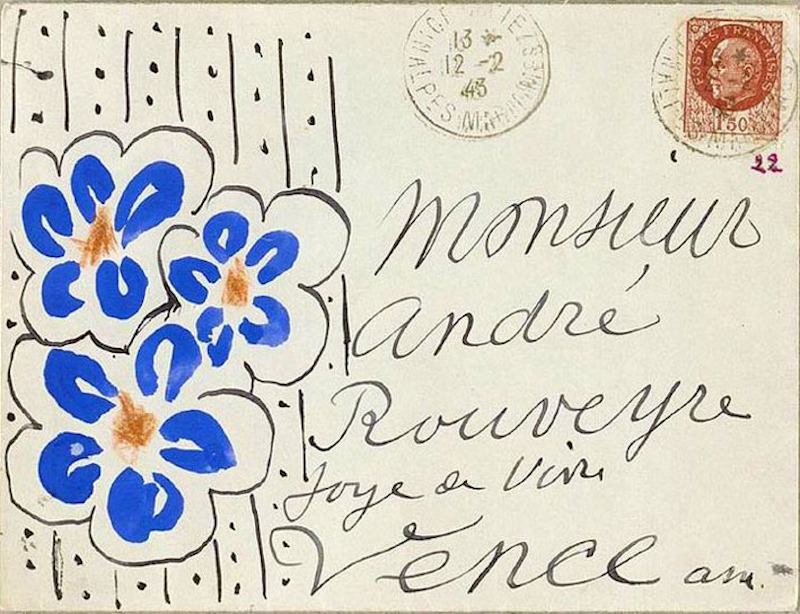 13
12 -2
43
POSTES FRANCAISES
1F50
22
Monsieur
André
Rouveyre
Joye de Vivre
Vence am.